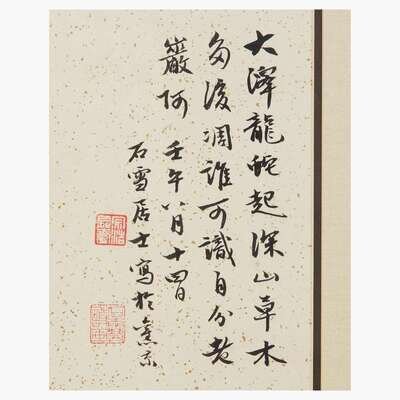 大澤龍蛇起深山草木
多後凋誰可識自分老
巖阿 壬午八月十四日
石雪居士寫於舊京